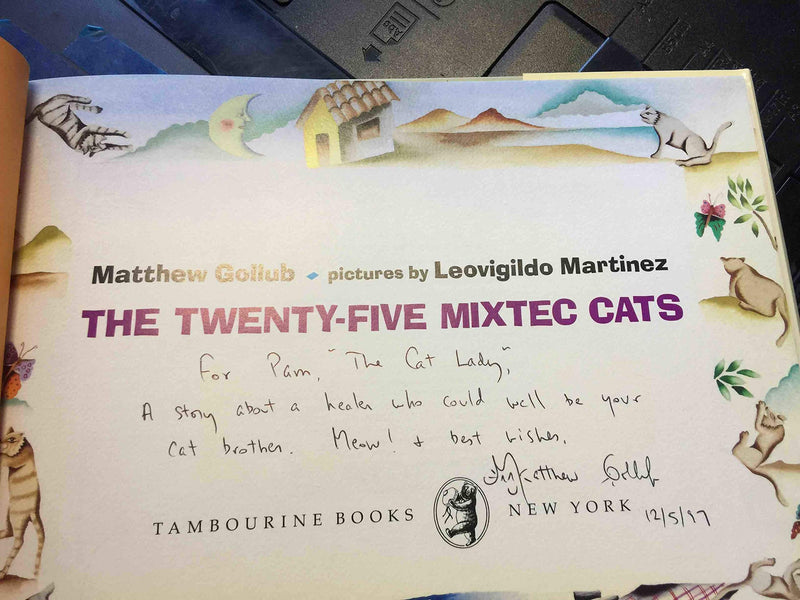 Matthew Gollub ◆ pictures by Leovigildo Martinez
THE TWENTY-FIVE MIXTEC CATS
For Pam, "The Cat Lady",
A story about a healer who could well be your
cat brother. Meow! & best wishes,
Matthew Gollub
TAMBOURINE BOOKS NEW YORK
12/5/97